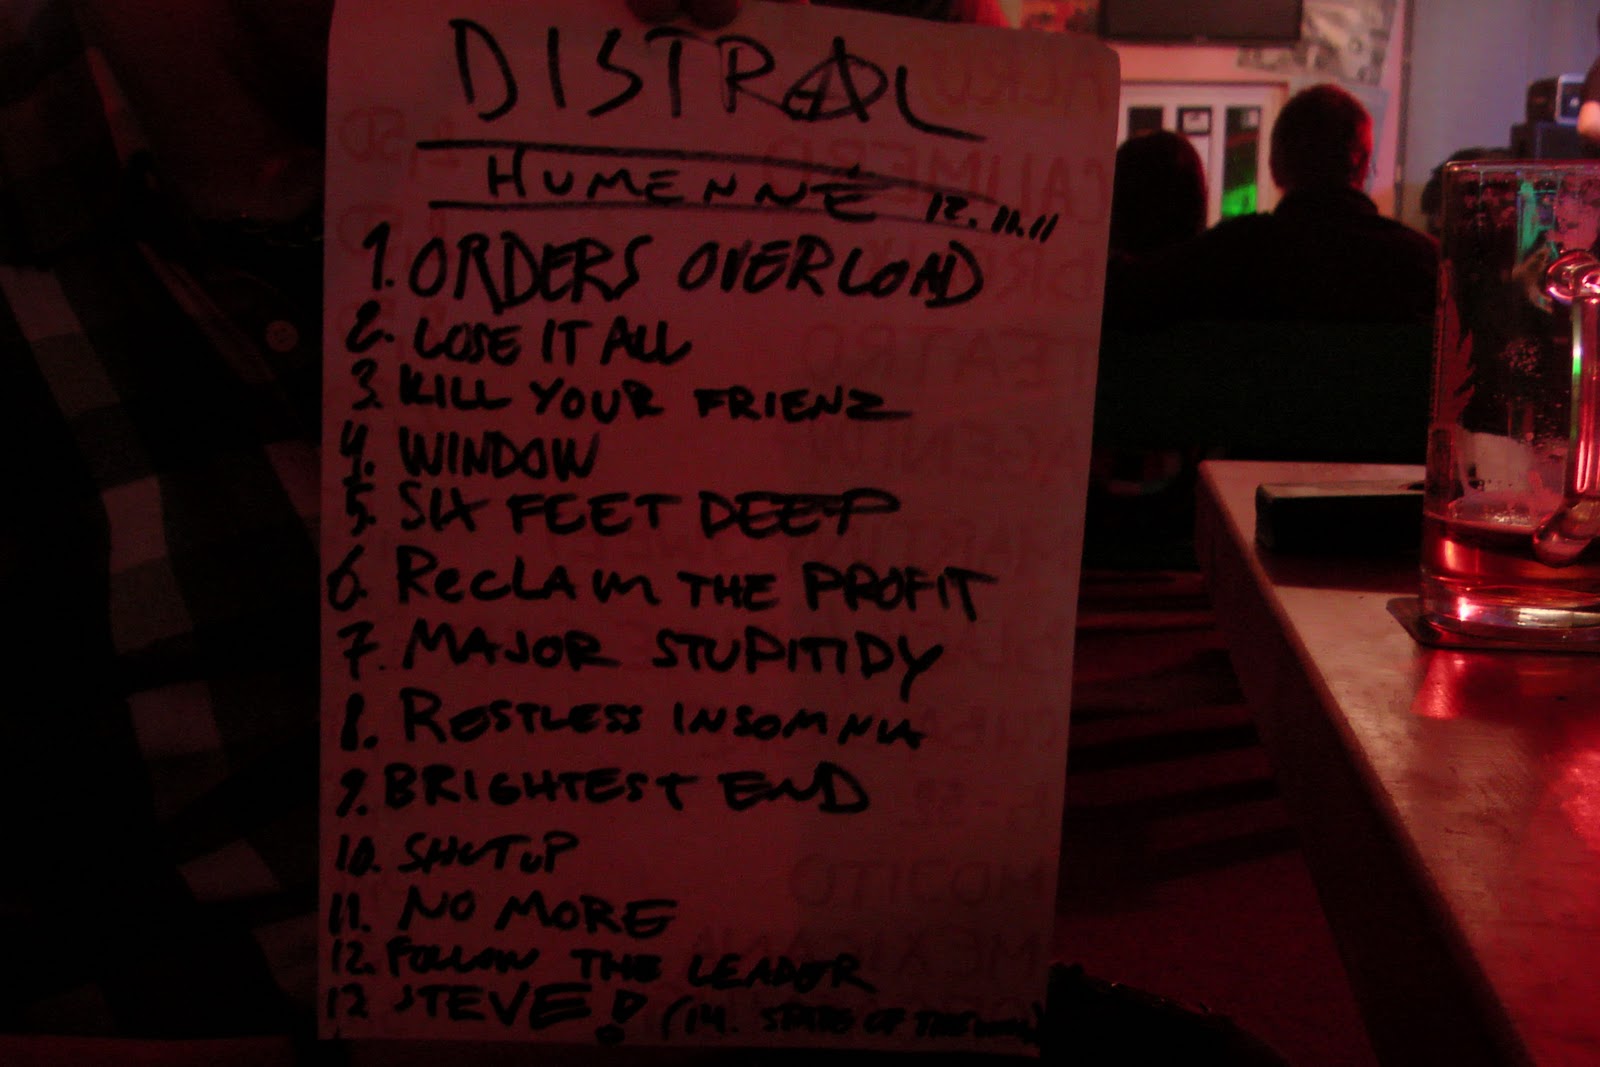 DISTRAL
HUMENNÉ 12.11.11
1. ORDERS OVERLOAD
2. LOSE IT ALL
3. KILL YOUR FRIENZ
4. WINDOW
5. SIX FEET DEEP
6. RECLAIM THE PROFIT
7. MAJOR STUPITIDY
8. RESTLESS INSOMNIA
9. BRIGHTEST END
10. SHUT UP
11. NO MORE
12. FOLLOW THE LEADER
12 STEVE! (14. STATE OF THE